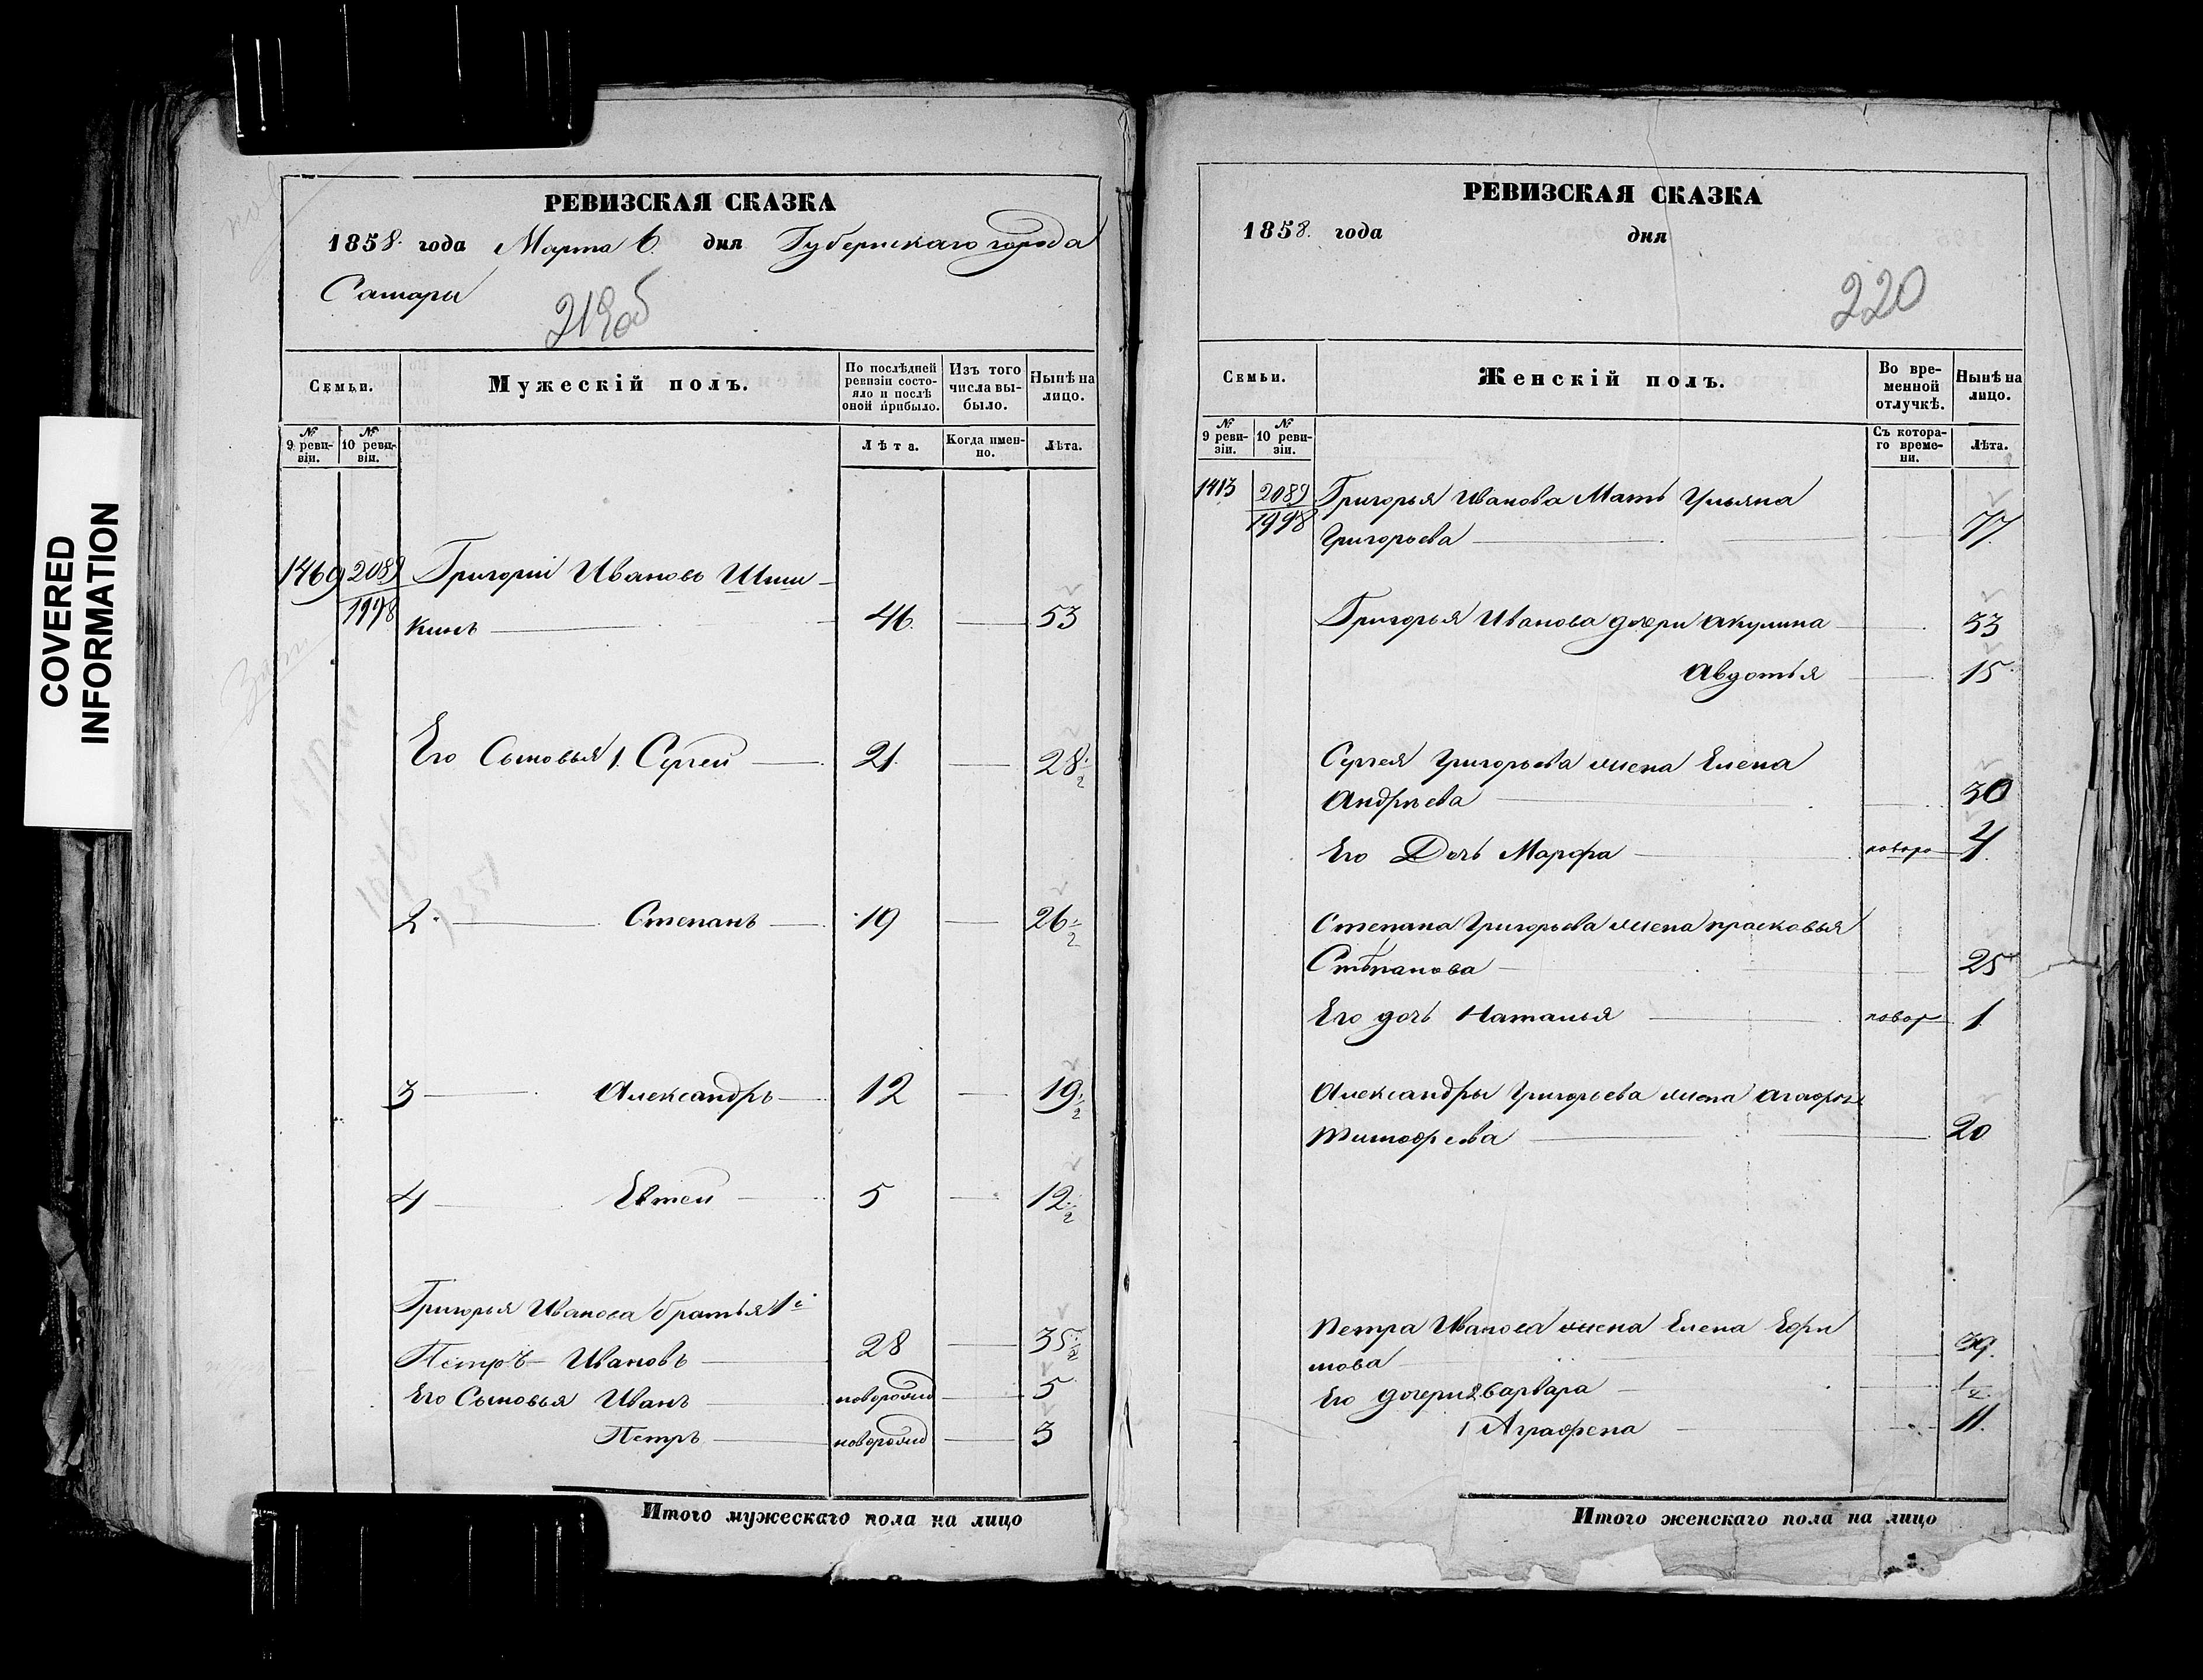 COVERED
INFORMATION
РЕВИЗСКАЯ СКАЗКА
1858. года Марта 6. дня Губернскаго города
Самары
219об
Семьи.
Мужескій полъ.
По послѣдней ревизіи состояло и послѣ оной прибыло.
Изъ того числа выбыло.
Нынѣ на лицо.
№ 9 ревизіи.
№ 10 ревизіи.
Лѣта.
Когда именно.
Лѣта.
1469 2089 Григорій Ивановъ Шиш-
1998 кинъ 46 53
Его Сыновья 1. Сергей 21. 28 1/2
2. Степанъ 19 26 1/2
3 Александръ 12 19 1/2
4 Евтей 5 12 1/2
Григорья Иванова братья 1й
Петръ Ивановъ 28 35 1/2
Его Сыновья Иванъ новорожд 5
Петръ новорожд 3
Итого мужескаго пола на лицо
РЕВИЗСКАЯ СКАЗКА
1858. года дня
220
Семьи.
Женскій полъ.
Во временной отлучкѣ.
Нынѣ на лицо.
№ 9 ревизіи.
№ 10 ревизіи.
Съ котораго времени.
Лѣта.
1413 2089 Григорья Иванова Мать Ульяна
1998 Григорьева 77
Григорья Иванова дочери Акулина 33
Авдотья 15
Сергея Григорьева жена Елена
Андрѣева 30
Его Дочь Марфа новоро 4
Степана Григорьева жена Прасковья
Степанова 25
Его дочь Наталья новор 1
Александры Григорьева жена Агафья
Тимофеева 20
Петра Иванова жена Елена Ефи
мова 39.
Его дочери 2. Варвара 1/2
1 Аграфена 11.
Итого женскаго пола на лицо